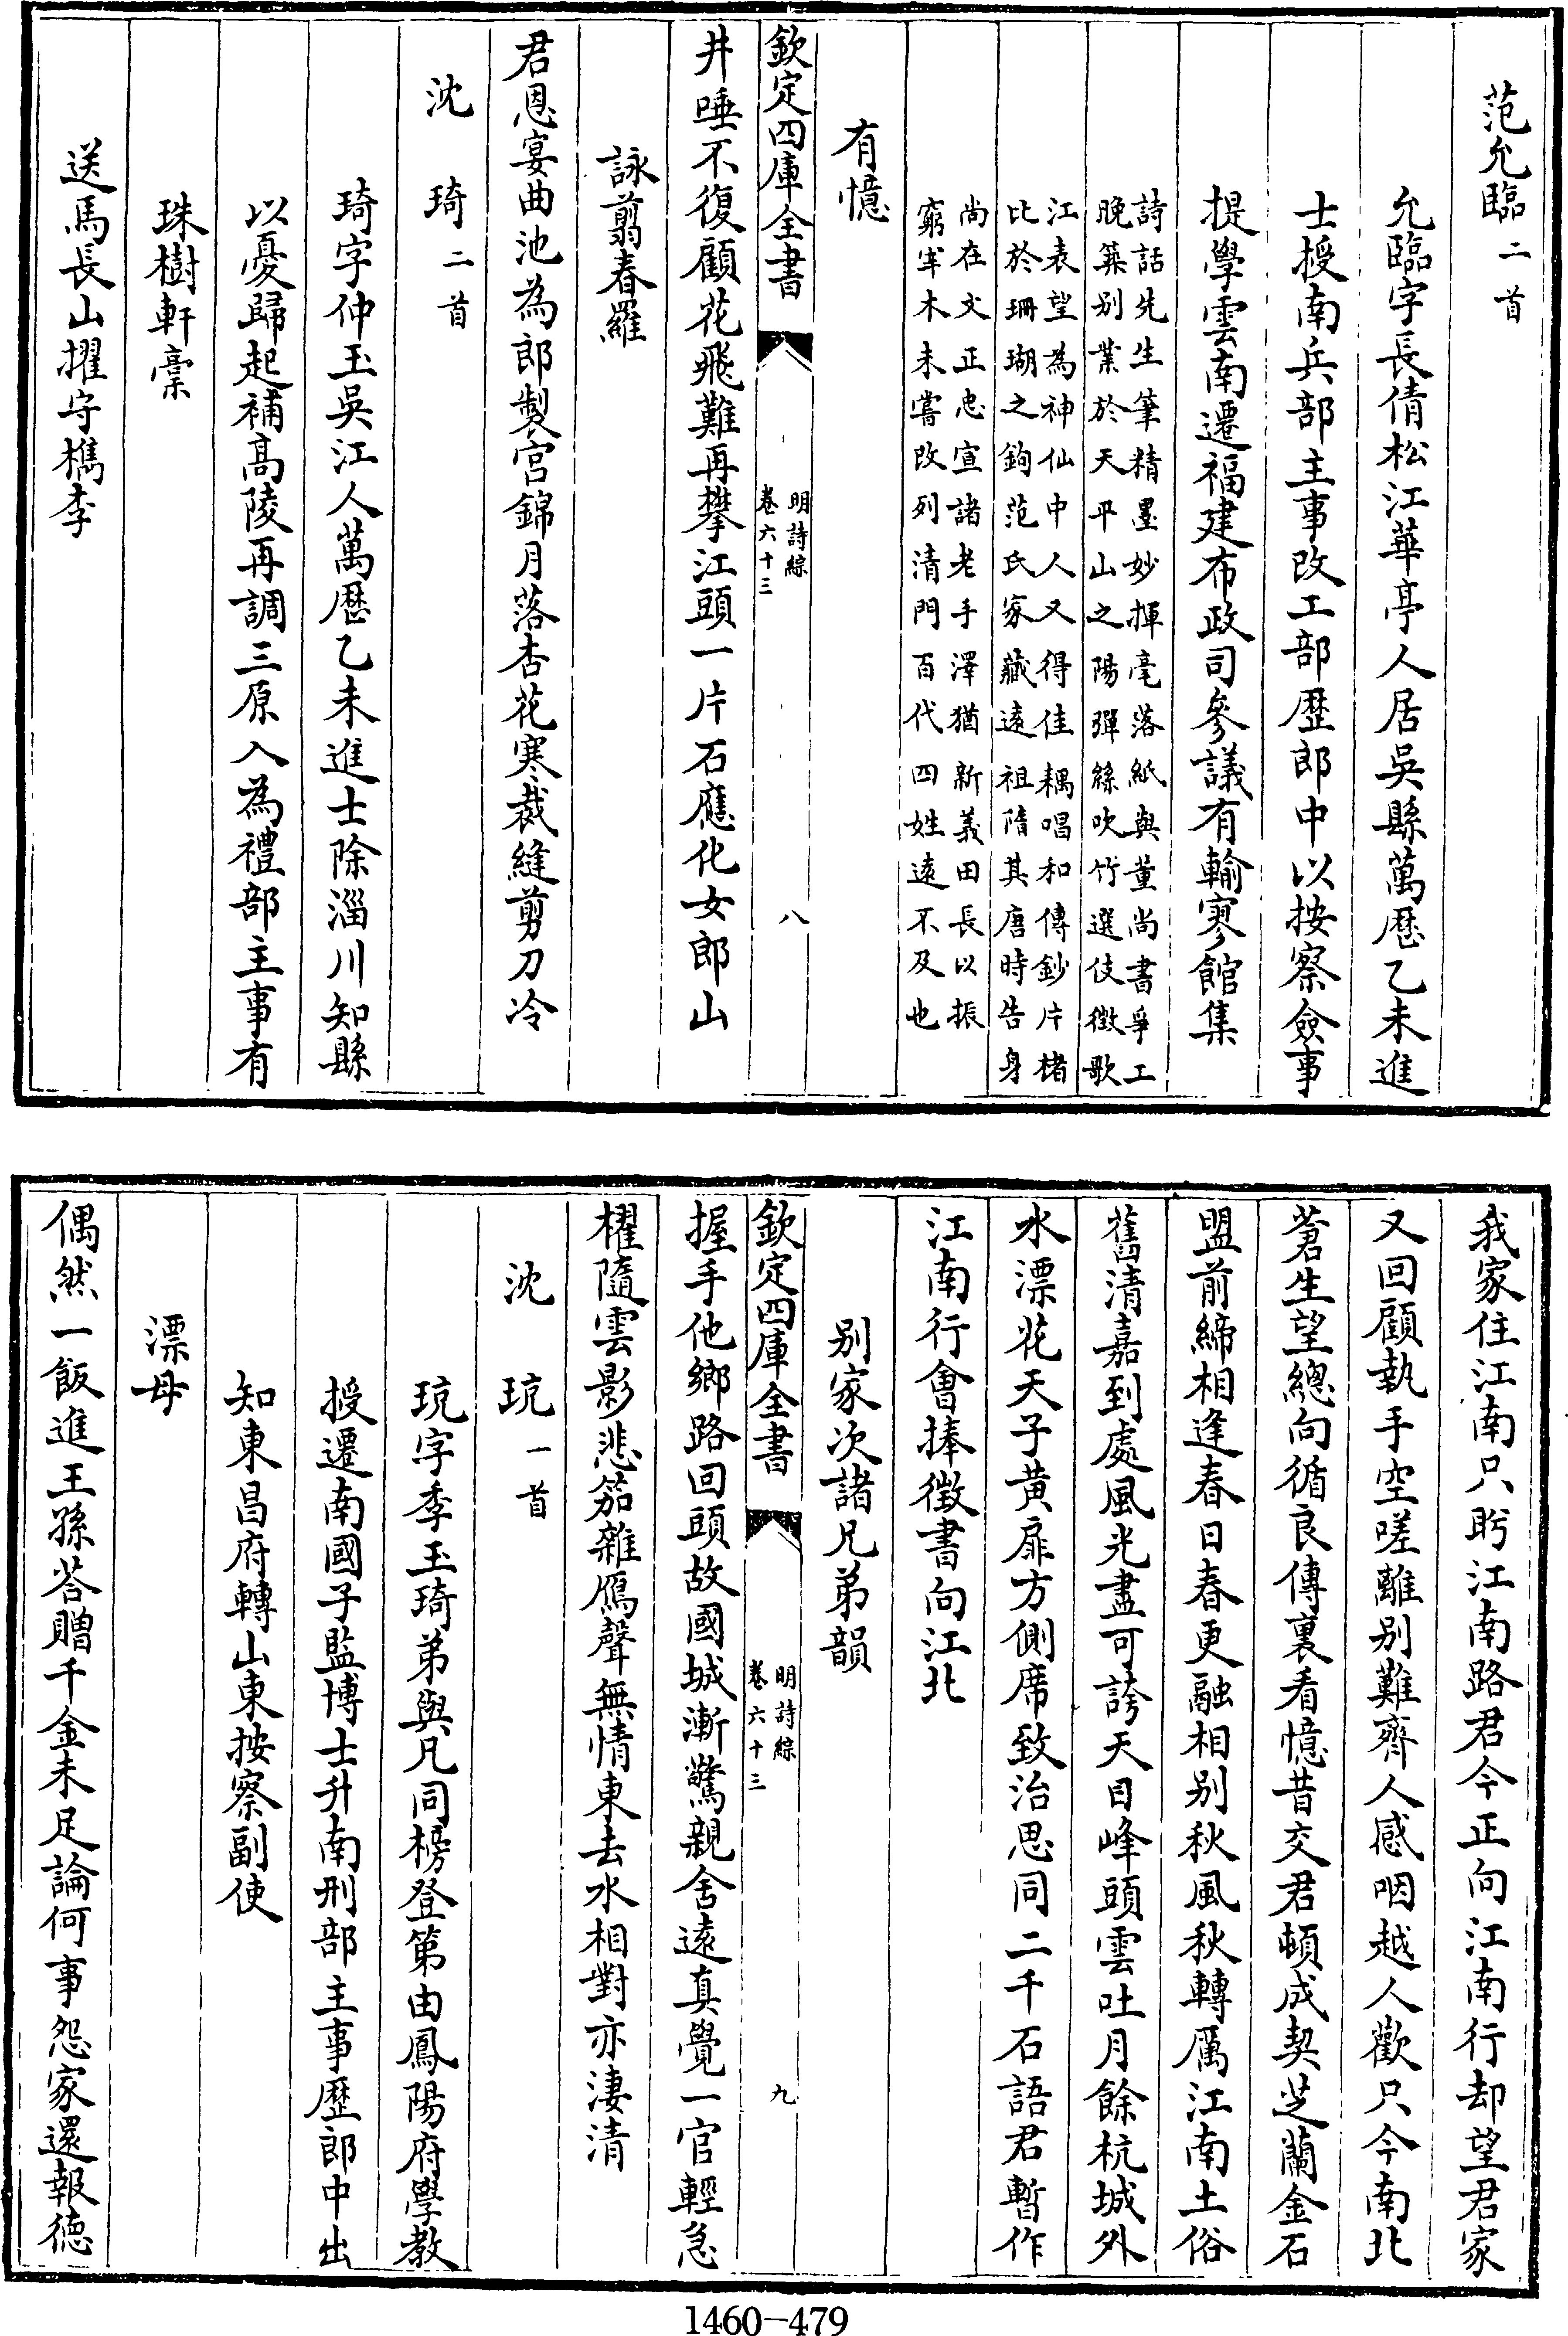 范允臨二首
允臨字長倩松江華亭人居吳縣萬厯乙未進
士授南兵部主事改工部歴郎中以按察僉事
提學雲南遷福建布政司參議有輸寥館集
詩話先生筆精墨妙揮毫落紙與董尚書爭工
晚築别業於天平山之陽彈絲吹竹選伎徵歌
江表望為神仙中人又得佳耦唱和傳鈔片楮
比於珊瑚之鉤范氏家藏遠祖隋其唐時告身
尚在文正忠宣諸老手澤猶新義田長以振
窮宰木未嘗改列清門百代四姓遠不及也
有憶
欽定四庫全書
明詩綜
卷六十三
八
井唾不復顧花飛難再攀江頭一片石應化女郎山
詠翦春羅
君恩宴曲池為郎製宮錦月落杏花寒裁縫剪刀冷
沈琦二首
琦字仲玉吳江人萬厯乙未進士除淄川知縣
以憂歸起補高陵再調三原入為禮部主事有
珠樹軒稾
送馬長山擢守檇李
我家住江南只盻江南路君今正向江南行却望君家
又回顧執手空嗟離别難齊人感咽越人歡只今南北
蒼生望總向循良傳裏看憶昔交君頓成契芝蘭金石
盟前締相逢春日春更融相别秋風秋轉厲江南土俗
舊清嘉到處風光盡可誇天目峰頭雲吐月餘杭城外
水漂花天子黄扉方側席致治思同二千石語君暫作
江南行會捧徵書向江北
别家次諸兄弟韻
欽定四庫全書
明詩綜
卷六十三
九
握手他鄉路回頭故國城漸驚親舍遠真覺一官輕急
櫂隨雲影悲笳雜鴈聲無情東去水相對亦淒清
沈珫一首
珫字季玉琦弟與凡同榜登第由鳳陽府學教
授遷南國子監博士升南刑部主事歴郎中出
知東昌府轉山東按察副使
漂母
偶然一飯進王孫荅贈千金未足論何事怨家還報德
1460-479